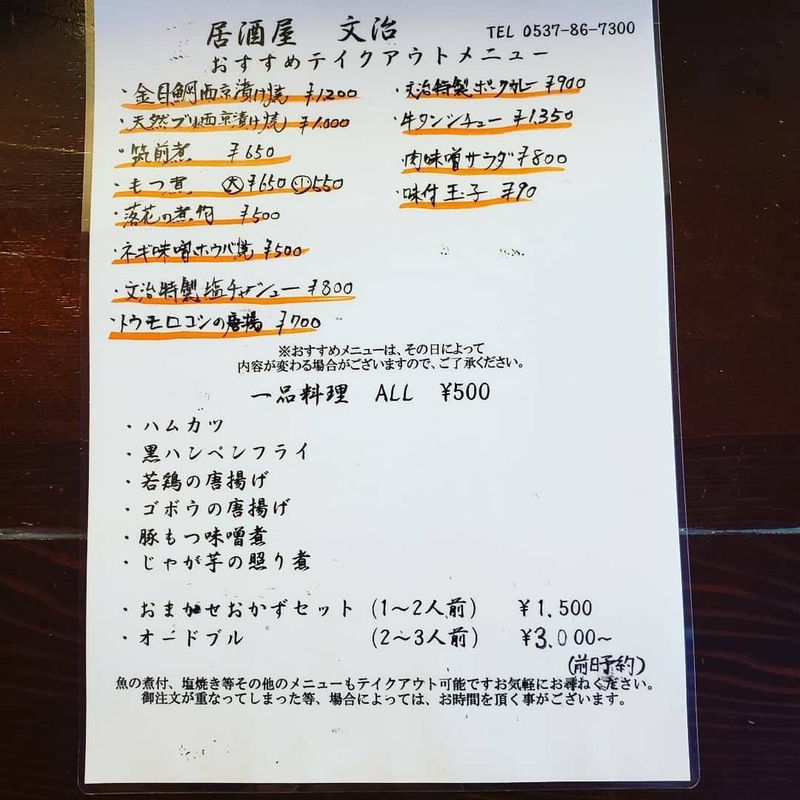 居酒屋 文治
TEL 0537-86-7300
おすすめテイクアウトメニュー
・金目鯛西京漬け焼 ¥1,200
・天然ブリ(西京漬け焼) ¥1,000
・筑前煮 ¥650
・もつ煮 大¥650 小550
・落花の煮付 ¥500
・ネギ味噌ホウバ焼 ¥500
・文治特製塩チャーシュー ¥800
・トウモロコシの唐揚 ¥700
・文治特製ポークカレー ¥900
・牛タンシチュー ¥1,350
・肉味噌サラダ ¥800
・味付玉子 ¥90
※おすすめメニューは、その日によって
内容が変わる場合がございますので、ご了承ください。
一品料理 ALL ¥500
・ハムカツ
・黒ハンペンフライ
・若鶏の唐揚げ
・ゴボウの唐揚げ
・豚もつ味噌煮
・じゃが芋の照り煮
・おまかせおかずセット (1～2人前) ¥1,500
・オードブル (2～3人前) ¥3,000～
(前日予約)
魚の煮付、塩焼き等その他のメニューもテイクアウト可能ですお気軽にお尋ねください。
御注文が重なってしまった等、場合によっては、お時間を頂く事がございます。